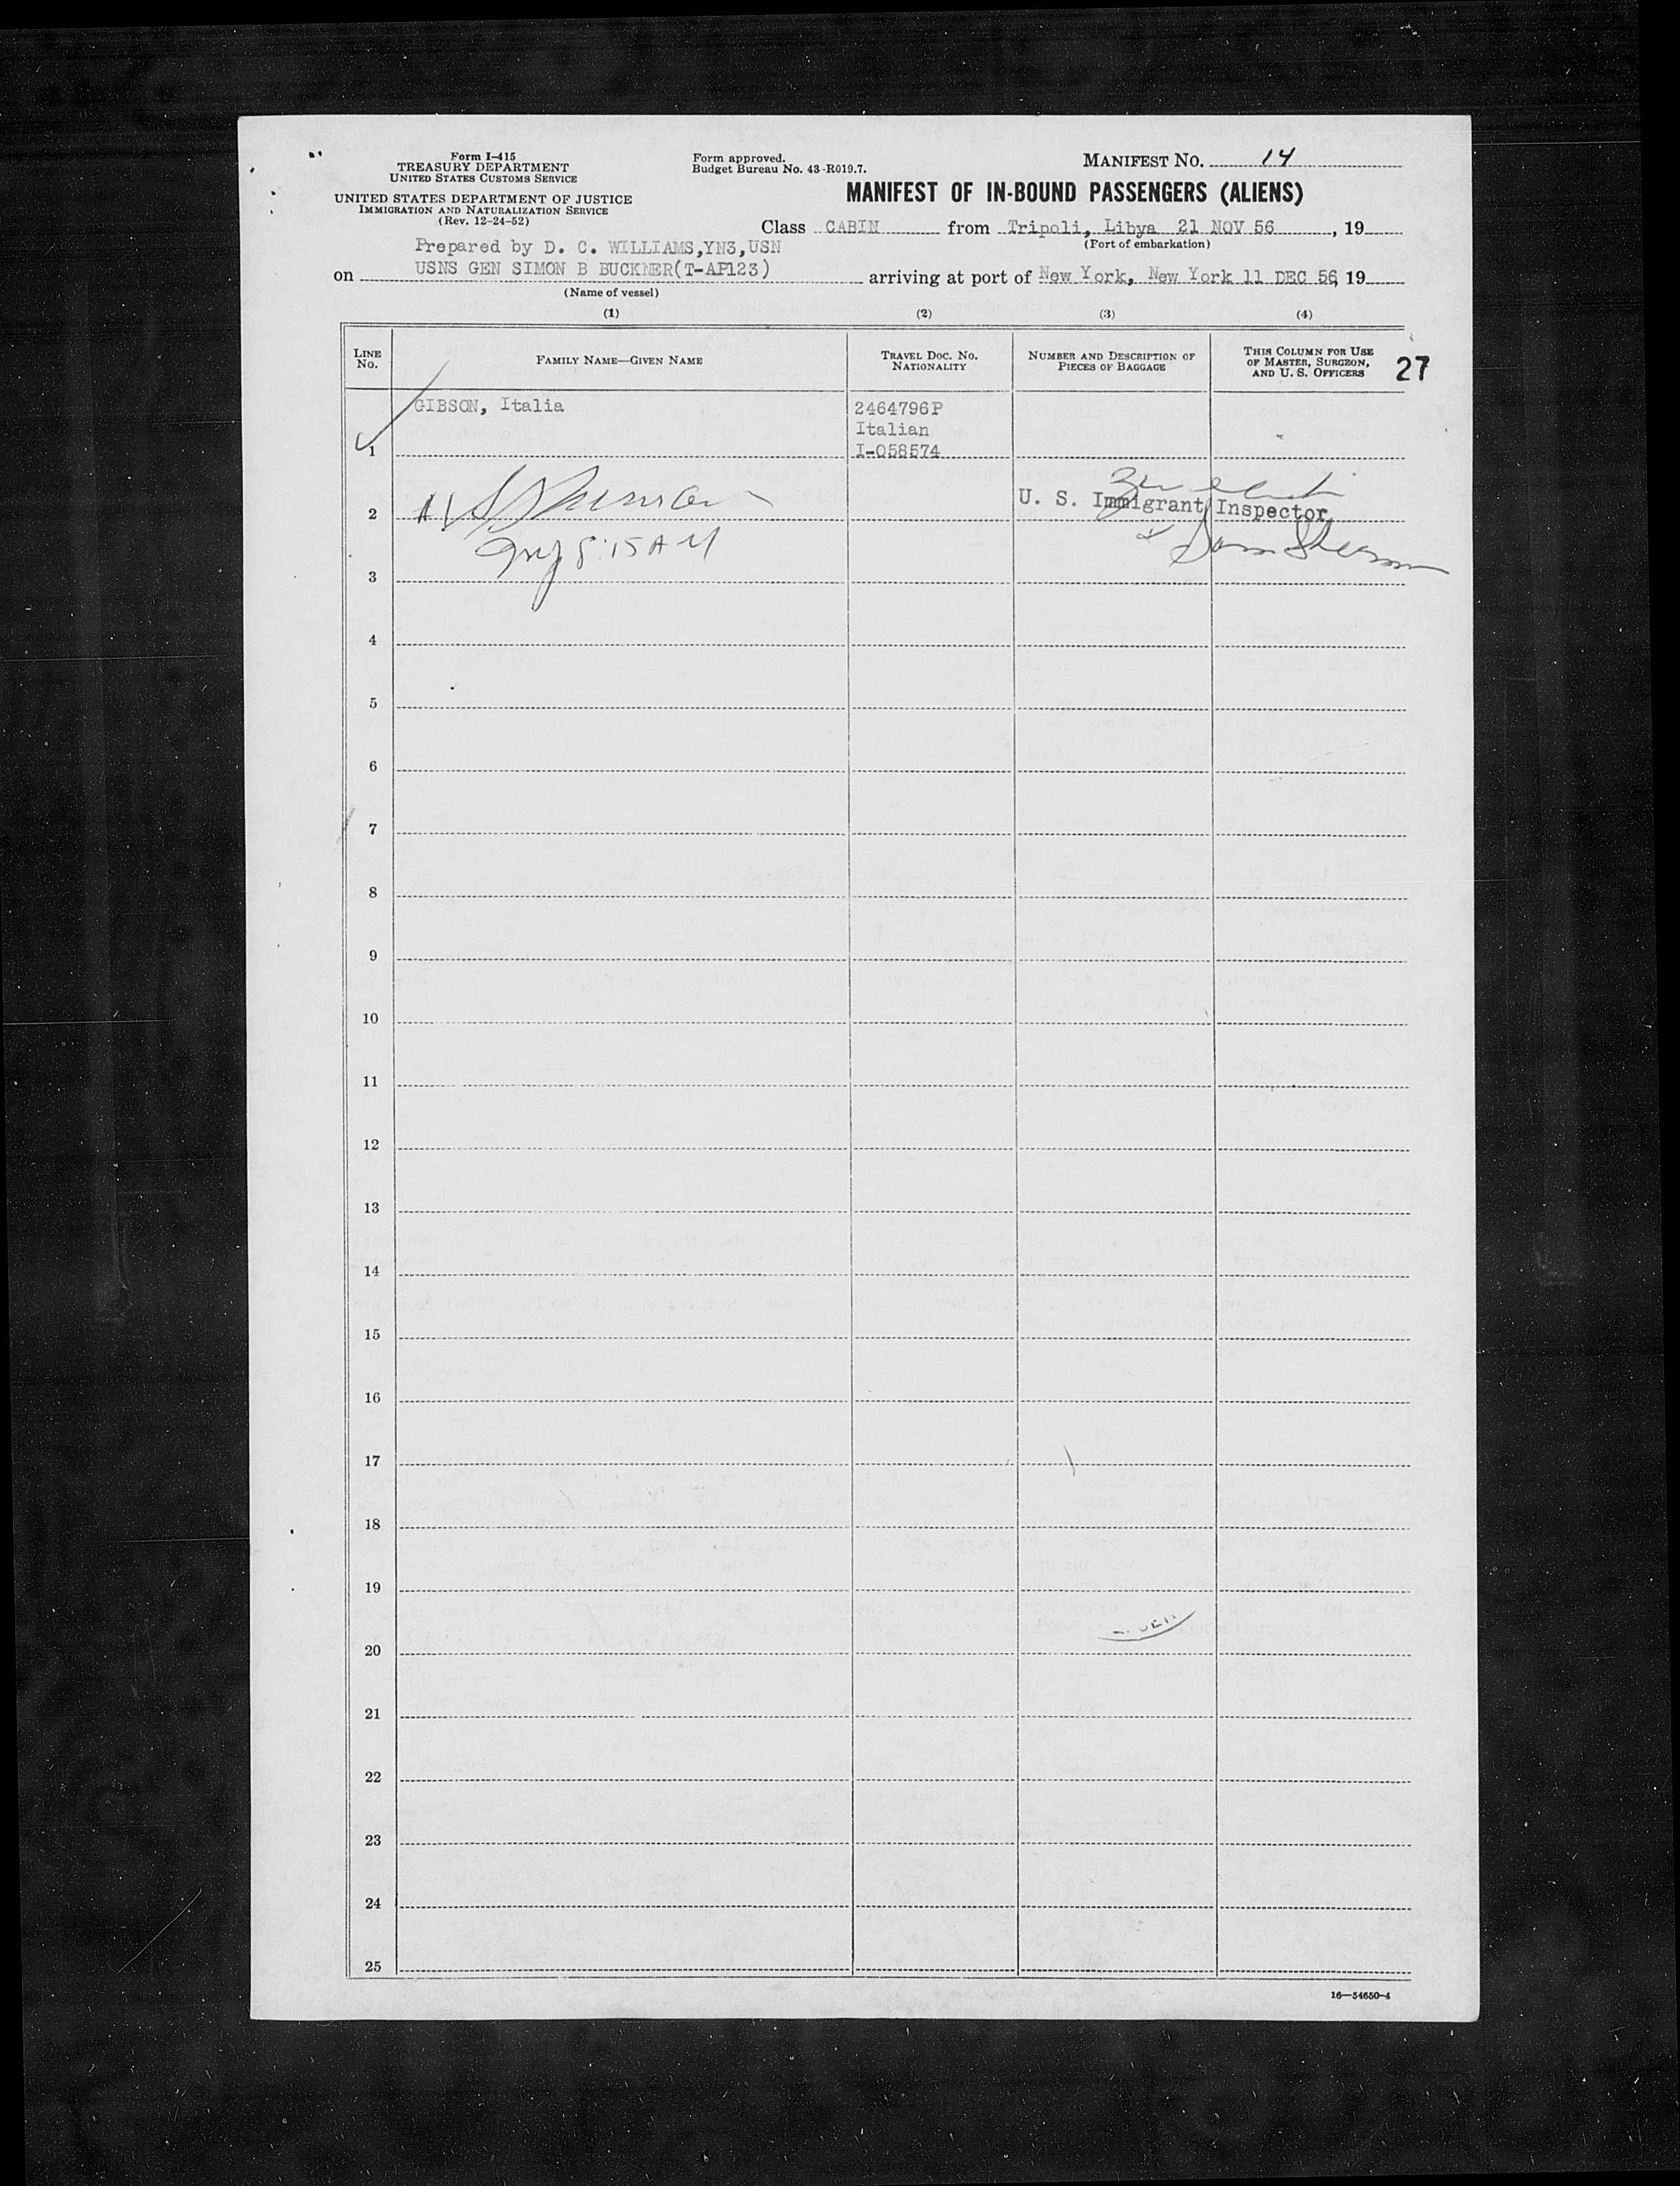 Form I-415
TREASURY DEPARTMENT
UNITED STATES CUSTOMS SERVICE
UNITED STATES DEPARTMENT OF JUSTICE
IMMIGRATION AND NATURALIZATION SERVICE
(Rev. 12-24-52)
Form approved.
Budget Bureau No. 43-R019.7.
MANIFEST No. 14
MANIFEST OF IN-BOUND PASSENGERS (ALIENS)
Class CABIN from Tripoli, Libya 21 NOV 56, 19
(Port of embarkation)
Prepared by D. C. WILLIAMS,YN3,USN
on USNS GEN SIMON B BUCKNER(T-AP123) arriving at port of New York, New York 11 DEC 56, 19
(Name of vessel)
(1) (2) (3) (4)
LINE No. FAMILY NAME—GIVEN NAME TRAVEL DOC. NO. NATIONALITY NUMBER AND DESCRIPTION OF PIECES OF BAGGAGE THIS COLUMN FOR USE OF MASTER, SURGEON, AND U. S. OFFICERS 27
GIBSON, Italia 2464796P
Italian
1 I-058574
U. S. Immigrant Inspector
2
8:15 AM
Sam Sherman
3
4
5
6
7
8
9
10
11
12
13
14
15
16
17
18
19
20
21
22
23
24
25
16—54650-4